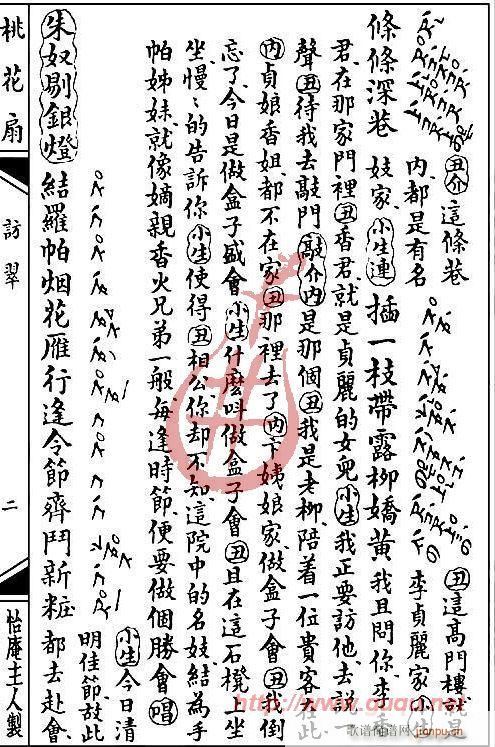 丑介這條巷
內都是有名
丑這高門樓就是
李貞麗家小生
條條深巷 妓家小生連 插一枝帶露柳嬌黃 我且問你李香
君在那家門裡丑香君就是貞麗的女兒小生我正要訪他去說一
聲丑待我去敲門敲介內是那個丑我是老柳陪着一位貴客在此
內貞娘香姐都不在家丑那裡去了內卞姨娘家做盒子會丑我倒
忘了今日是做盒子盛會小生什麼叫做盒子會丑且在這石櫈上坐
坐慢〻的告訴你小生使得丑相公你却不知這院中的名妓結為手
帕姊妹就像嫡親香火兄弟一般每逢時節便要做個勝會唱
小生今日清
明佳節故此
朱奴剔銀燈 結羅帕烟花雁行逢令節齊鬥新粧 都去赴會
桃花扇
訪翠
二
怡庵主人製
歌谱简谱网
jianpu.cn